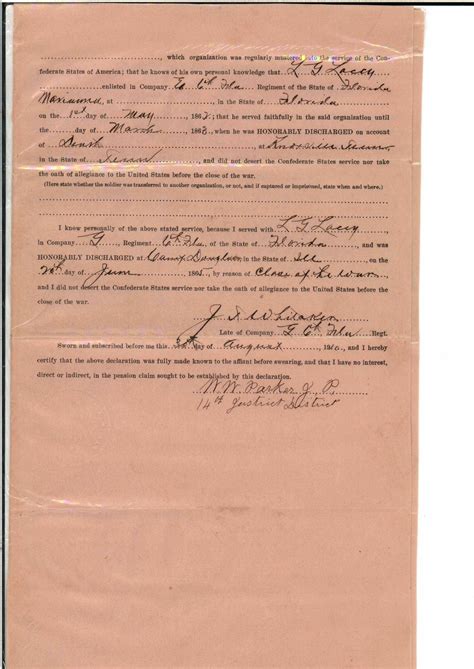 , which organization was regularly mustered into the service of the Con-
federate States of America; that he knows of his own personal knowledge that L G Lacey
enlisted in Company E 6th Fla Regiment of the State of Florida
Marianna at , in the State of Florida
on the 1st day of May 1862; that he served faithfully in the said organization until
the day of March 1863, when he was HONORABLY DISCHARGED on account
of Death at Knoxville Tenn
in the State of Tenn, and did not desert the Confederate States service nor take
the oath of allegiance to the United States before the close of the war.
(Here state whether the soldier was transferred to another organization, or not, and if captured or imprisoned, state when and where.)
I know personally of the above stated service, because I served with L G Lacey
in Company G Regiment 6th Fla of the State of Florida, and was
HONORABLY DISCHARGED at Camp Douglas, in the State of Ill on the
20th day of June 1865, by reason of Close of the war
and I did not desert the Confederate States service nor take the oath of allegiance to the United States before the
close of the war.
J. T. Whitaker
Late of Company G 6th Fla Regt.
Sworn and subscribed before me this day of August 190, and I hereby
certify that the above declaration was fully made known to the affiant before swearing, and that I have no interest,
direct or indirect, in the pension claim sought to be established by this declaration.
W. W. Parker J. P.
14th District